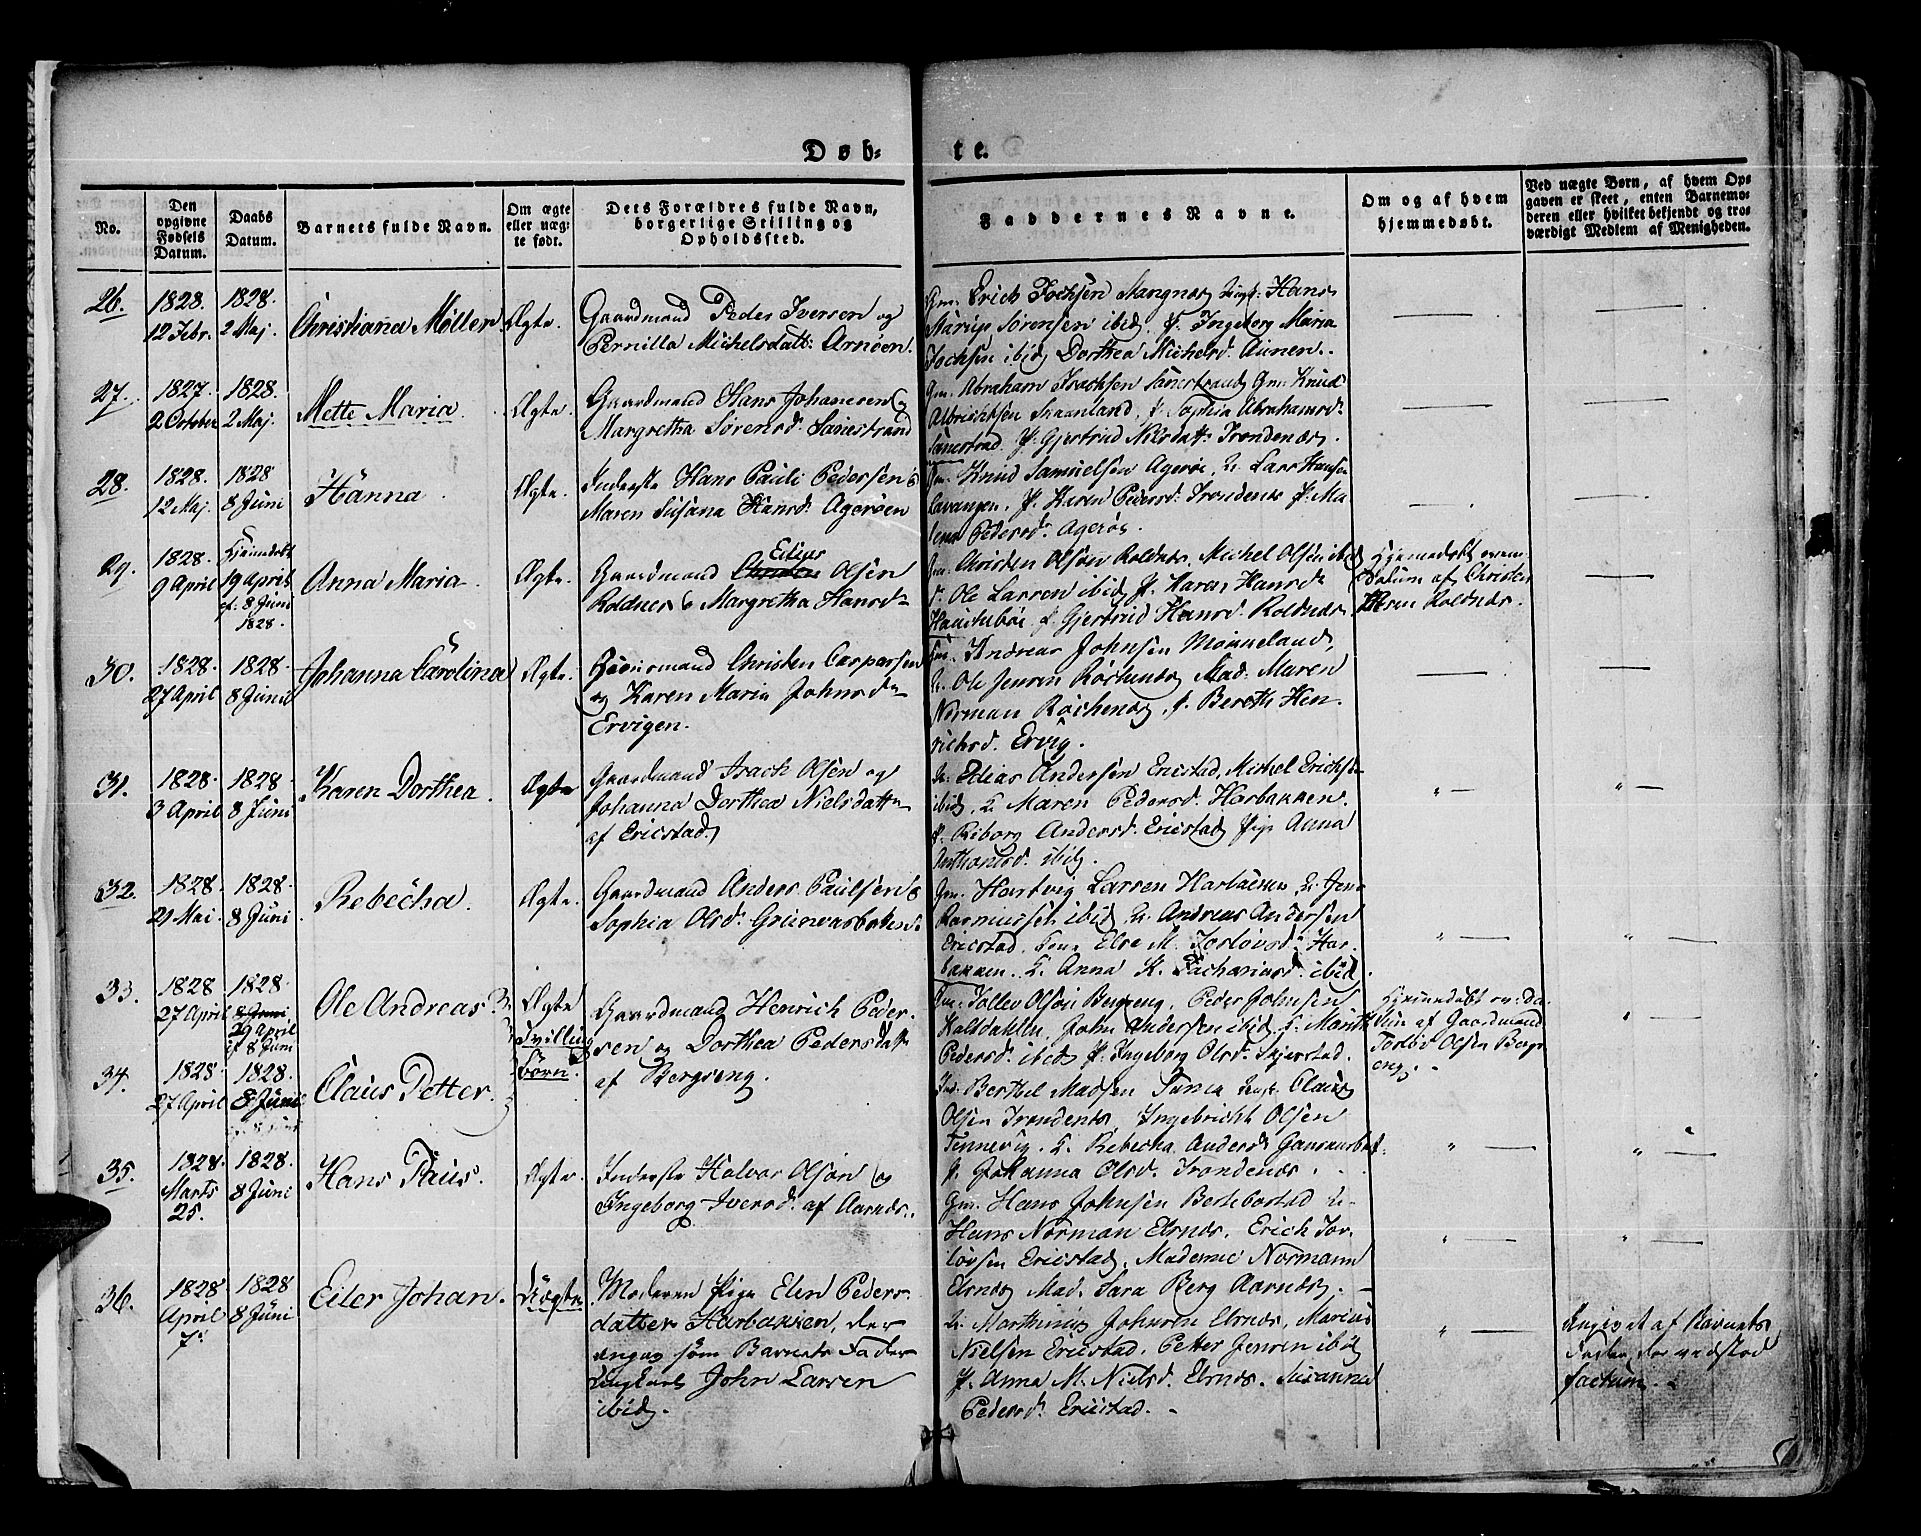 Døb-
te.
No.
Den opgivne Fødsels Datum.
Daabs Datum.
Barnets fulde Navn.
Om ægte eller uægte født.
Dets Forældres fulde Navn, borgerlige Stilling og Opholdssted.
Faddernes Navne.
Om og af hvem hjemmedøbt.
Ved uægte Børn, af hvem Opgaven er skeet, enten Barnemoderen eller hvilket bekjendt og troværdigt Medlem af Menigheden.
26.
1828.
12 Febr.
1828.
2 Maj.
Christiana Møller
Ægte.
Gaardmand Peder Iversen og
Pernilla Michelsdatt: Arnøen.
Gm. Erich Jochsen Mangnæs Hans
Sørensen ibid, P. Ingeborg Maria
Jochsen ibid Dorthea Michelsd. Aunen.
27.
1827.
2 October
1828.
2 Maj.
Mette Maria.
Ægte.
Gaardmand Hans Johannesen og
Margretha Sørensd. Sanestrand
Gm. Abraham Isachsen Sanestrand Gm. Knud
Albrichtsen Traanland, P. Sophia Abrahamsd.
Sanestrad. P. Gjertrud Nilsdatt: Trondenæs.
28.
1828.
12 Maj.
1828
8 Juni
Hanna.
Ægte.
Inderste Hans Pauli Pedersen &
Maren Susana Hansd. Agerøen
Gm. Knud Samuelsen Agerøe, U. Lars Hansen
Lavangen, P. Karen Pedersd. Trondenæs P. Ma
lena Pedersd. Agerøe
29.
1828.
9 April
Hjemmedøbt
19 April
ef: 8 Juni
1828.
Anna Maria.
Ægte.
Gaardmand Christen Eilius Olsen
Roldnes & Margretha Hansd.
Gm. Christen Olsøn Roldnæs, Michel Olsen ibid
Ole Larsen ibid P. Karen Hansd.
P. Gjertrud Hansd. Roldnæs
Hjemmedøbt
Datum af Christen
Roldnæs.
30.
1828.
27 April
1828
8 Junii
Johanna Carolina
Ægte.
Huusmand Christen Caspersen
og Karen Maria Johnsd.
Ervigen.
Gm. Andreas Johnsen Mønneland,
U. Ole Jensen Rochenæs Mad. Maren
Norman Rochenæs, P. Bereth Hen
richsd. Ervig.
31.
1828.
3 April
1828
8 Juni
Karen Dorthea.
Ægte
Gaardmand Isach Olsen og
Johanna Dorthea Nielsdatter
af Ericstad.
U. Elias Andersen Ericstad, Michel Erichsen
ibid, K. Maren Pedersd. Harbakken.
P. Reborg Andersd. Ericstad Pige Anna
Anthonsd. ibid.
32.
1828.
21 Mai.
1828.
8 Juni
Rebecha.
Ægte.
Gaardmand Anders Paulsen &
Sophia Olsd. Grunvasbaken
Gm. Hartvig Larsen Harbakken, U. Jens
Rasmussen ibid, U. Andreas Andersen
Ericstad. Kone Else M. Torløvsd. Har-
bakken. K. Anna K. Zachariasd. ibid.
33.
1828
27 April
1828.
8 Juni
29 April
ef 8 Juni
Ole Andreas
Ægte
Tvilling
Børn.
Gaardmand Henrich Peder-
sen og Dorthea Pedersdatt.
af Bergseng.
Gm. Tollev Olsøn Bergseng, Peder Johnsen
Kaldahlen, John Andersen ibid P. Marith
Pedersd. ibid P. Ingeborg Olsd. Skjerstad.
Hjemmedøbt
af Gaardmand
Torløv Olsen Bergs-
eng.
34.
1828.
27 April
1828.
8 Juni
Claus Petter.
Ind. Berthel Madsen Claus
Olsen Trondenæs, Ingebricht Olsen
Tennevig. K. Rebecka Andersd.
P. Johanna Olsd. Trondenæs.
35.
1828.
Marts
25.
1828.
8 Juni
Hans Paus.
Ægte.
Inderste Halvor Olsøn og
Ingeborg Iversd. af Aarnæs.
Gm. Hans Johnsen Bertebostad U.
Hans Norman Elsnæs. Erich Tor-
løvsen Ericstad. Mademe Normann
Elsnæs Mad. Sara Berg Aarnæs.
36.
1828
April
7.
1828
8 Juni
Eiler Johan.
Uægte
Moderen Pige Elen Peders
datter Harbakken, der
angav som Barnets Fader
Ungkarl John Larsen
ibid.
U. Marthinus Johnsen Elsnæs, Marius
Nielsen Ericstad. Petter Jensen ibid
P. Anna M. Nielsd. Elsnæs. Susanna
Pedersd. Ericstad.
Angivet af Barnets
Fader der vedstod
factum.